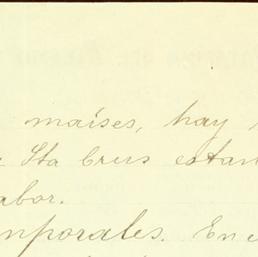 maises, hay
Sta Crus estan
abor.
nporales. En e